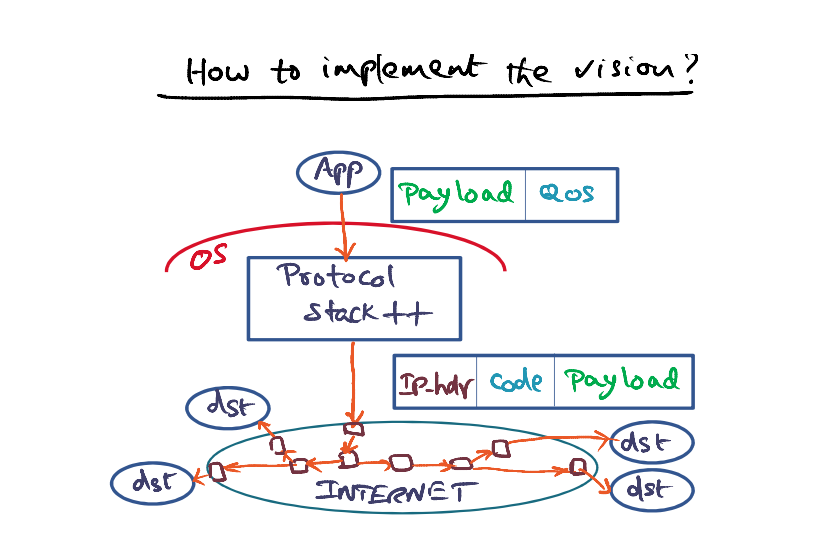 How to implement the vision?
App
Payload QOS
OS
Protocol
Stack ++
IP_hdr Code Payload
dst
dst
dst
dst
INTERNET